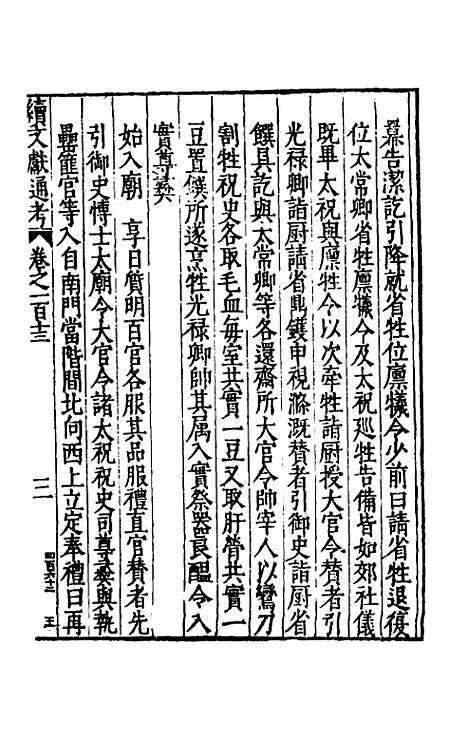 冪告潔訖引降就省牲位廪犧令少前曰請省牲退復
位太常卿省牲廪犧令及太祝廵牲告備皆如郊社儀
既畢太祝與廪牲令以次牽牲詣厨授大官令賛者引
光禄卿詣厨請省鼎鑊申視滌溉賛者引御史詣厨省
饌具訖與太常卿等各還齋所大官令帥宰人以鸞刀
割牲祝史各取毛血每室共實一豆又取肝膋共實一
豆置饌所遂烹牲光禄卿帥其属入實祭器良醖令入
實尊彛
始入廟　享日質明百官各服其品服禮直官賛者先
引御史博士太廟令大官令諸太祝祝史司尊彛與執
罍篚官等入自南門當階間北向西上立定奉禮曰再
續文獻通考　卷之一百十三　三